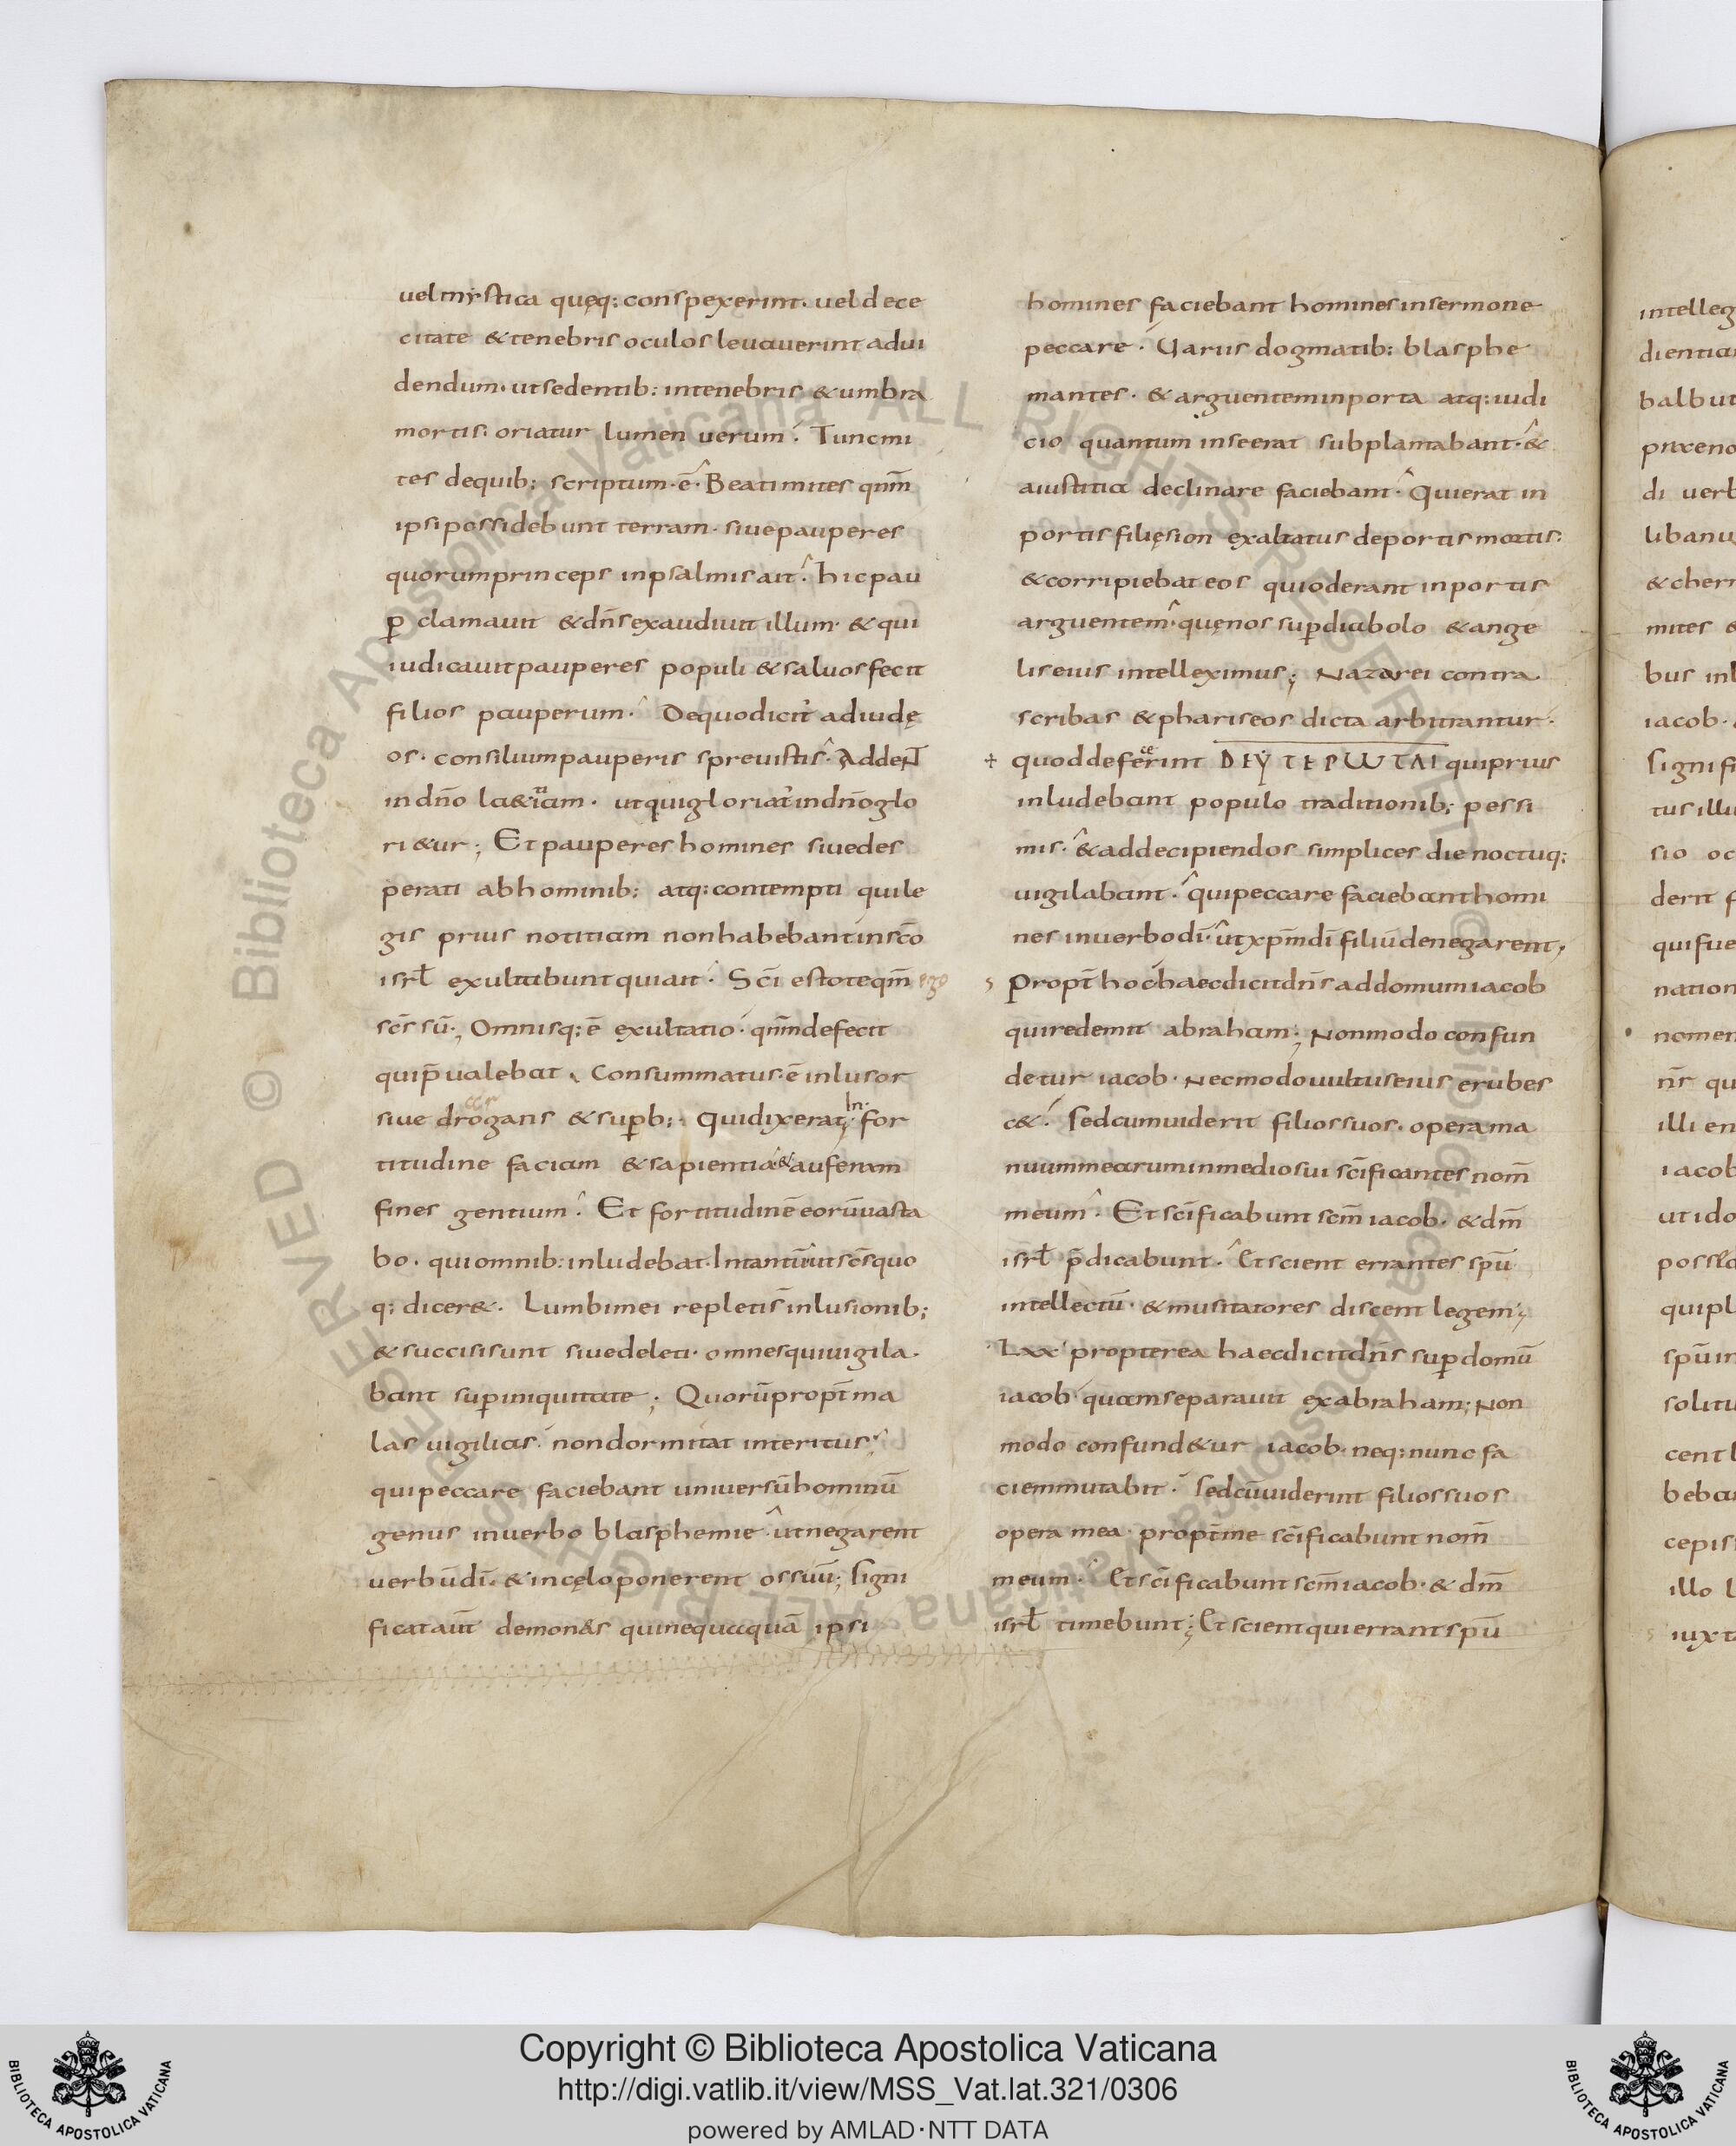 uel mystica quęq: conspexerint. uel de ce
citate & tenebris oculos leuauerint ad ui
dendum. ut sedentib: in tenebris & umbra
mortis. oriatur lumen uerum. Tunc mi
tes de quib: scriptum. ē. Beati mites qnm̄
ipsi possidebunt terram. siue pauperes
quorum princeps in psalmis ait. hic pau
ꝑ clamauit & dn̄s exaudiuit illum. & qui
iudicauit pauperes populi & saluos fecit
filios pauperum. De quo dicit̄ ad iudę
os. consilium pauperis spreuistis. Addent
in dn̄o lα&itiam. ut qui gloriat̄ in dn̄o glo
ri&ur; Et pauperes homines siue des
perati ab hominib: atq: contempti qui le
gis prius notitiam non habebant in sc̄o
isrl̄ exultabunt quia it. Sc̄i estote qm̄ ego
sc̄s sū; Omnisq: ē exultatio. qnm̄ defecit
qui p̄ualebat. Consummatus. ē inlusor
siue arrogans & suꝑb; Qui dixerat. In for
titudine faciam & sapientia & auferam
fines gentium. Et fortitudinē eorū uasta
bo. qui omnib: inludebat. Intantū ut sc̄s quo
q; dicer&. Lumbi mei repleti s̄ inlusionib;
& succisi sunt siue deleti. omnes qui uigila
bant suꝑ iniquitate; Quorū propt̄ ma
las uigilias. non dormitat interitus
qui peccare faciebant uniuersū hominū
genus in uerbo blasphemie. ut negarent
uerbū dī. & in cęlo ponerent os suū; Signi
ficat aūt demon&s qui nequaquā ipsi
homines faciebant homines in sermone
peccare. Uariis dogmatib: blasphe
mantes. & arguentem in porta atq: iudi
cio quantum in se erat subplantabant. &
a iustitia declinare faciebant. Qui erat in
portis filię sion exaltatus de portis mortis.
& corripiebat eos qui oderant in portis
arguentem. quę nos suꝑ diabolo & ange
lis eius intelleximus; Nazarei contra
scribas & phariseos dicta arbitrantur.
quod defecerint ΔΕΥΤΕΡωΤΑΙ qui prius
inludebant populo traditionib; pessi
mis. & ad decipiendos simplices die noctuq;
uigilabant. qui peccare faciebant homi
nes in uerbo dī. ut xp̄m dī filiū denegarent,
Propt̄ hoc haec dicit dn̄s ad domum iacob
qui redemit abraham; Non modo confun
detur iacob. Nec modo uultus eius erubes
c&. Sed cum uiderit filios suos. opera ma
nuum mearum in medio sui sc̄ificantes nom̄
meum. Et sc̄ificabunt scm̄ iacob. & dm̄
isrl̄ p̄dicabunt. Et scient errantes spū
intellectū. & musitatores discent legem;
Lxx propterea haec dicit dn̄s suꝑ domū
iacob quam separauit ex abraham; Non
modo confund&ur iacob. neq: nunc fa
ciem mutabit. Sed cū uiderint filios suos
opera mea. propt̄ me sc̄ificabunt nom̄
meum. Et sc̄ificabunt scm̄ iacob. & dm̄
isrl̄ timebunt; Et scient qui errant spū
intelleg
dientia
balbut
di uerb
libanu
& cher
mites &
bus in
iacob.
Signifi
tus illu
sio oc
derit f
qui fue
nation
nomen
nr̄ qu
illi en
iacob
ut ido
qui pl
spū in
solitu
cent l
beba
cepis
illo l
iuxta
© Biblioteca Apostolica Vaticana ALL RIGHTS RESERVED
Copyright © Biblioteca Apostolica Vaticana
http://digi.vatlib.it/view/MSS_Vat.lat.321/0306
powered by AMLAD·NTT DATA
BIBLIOTECA APOSTOLICA VATICANA
BIBLIOTECA APOSTOLICA VATICANA